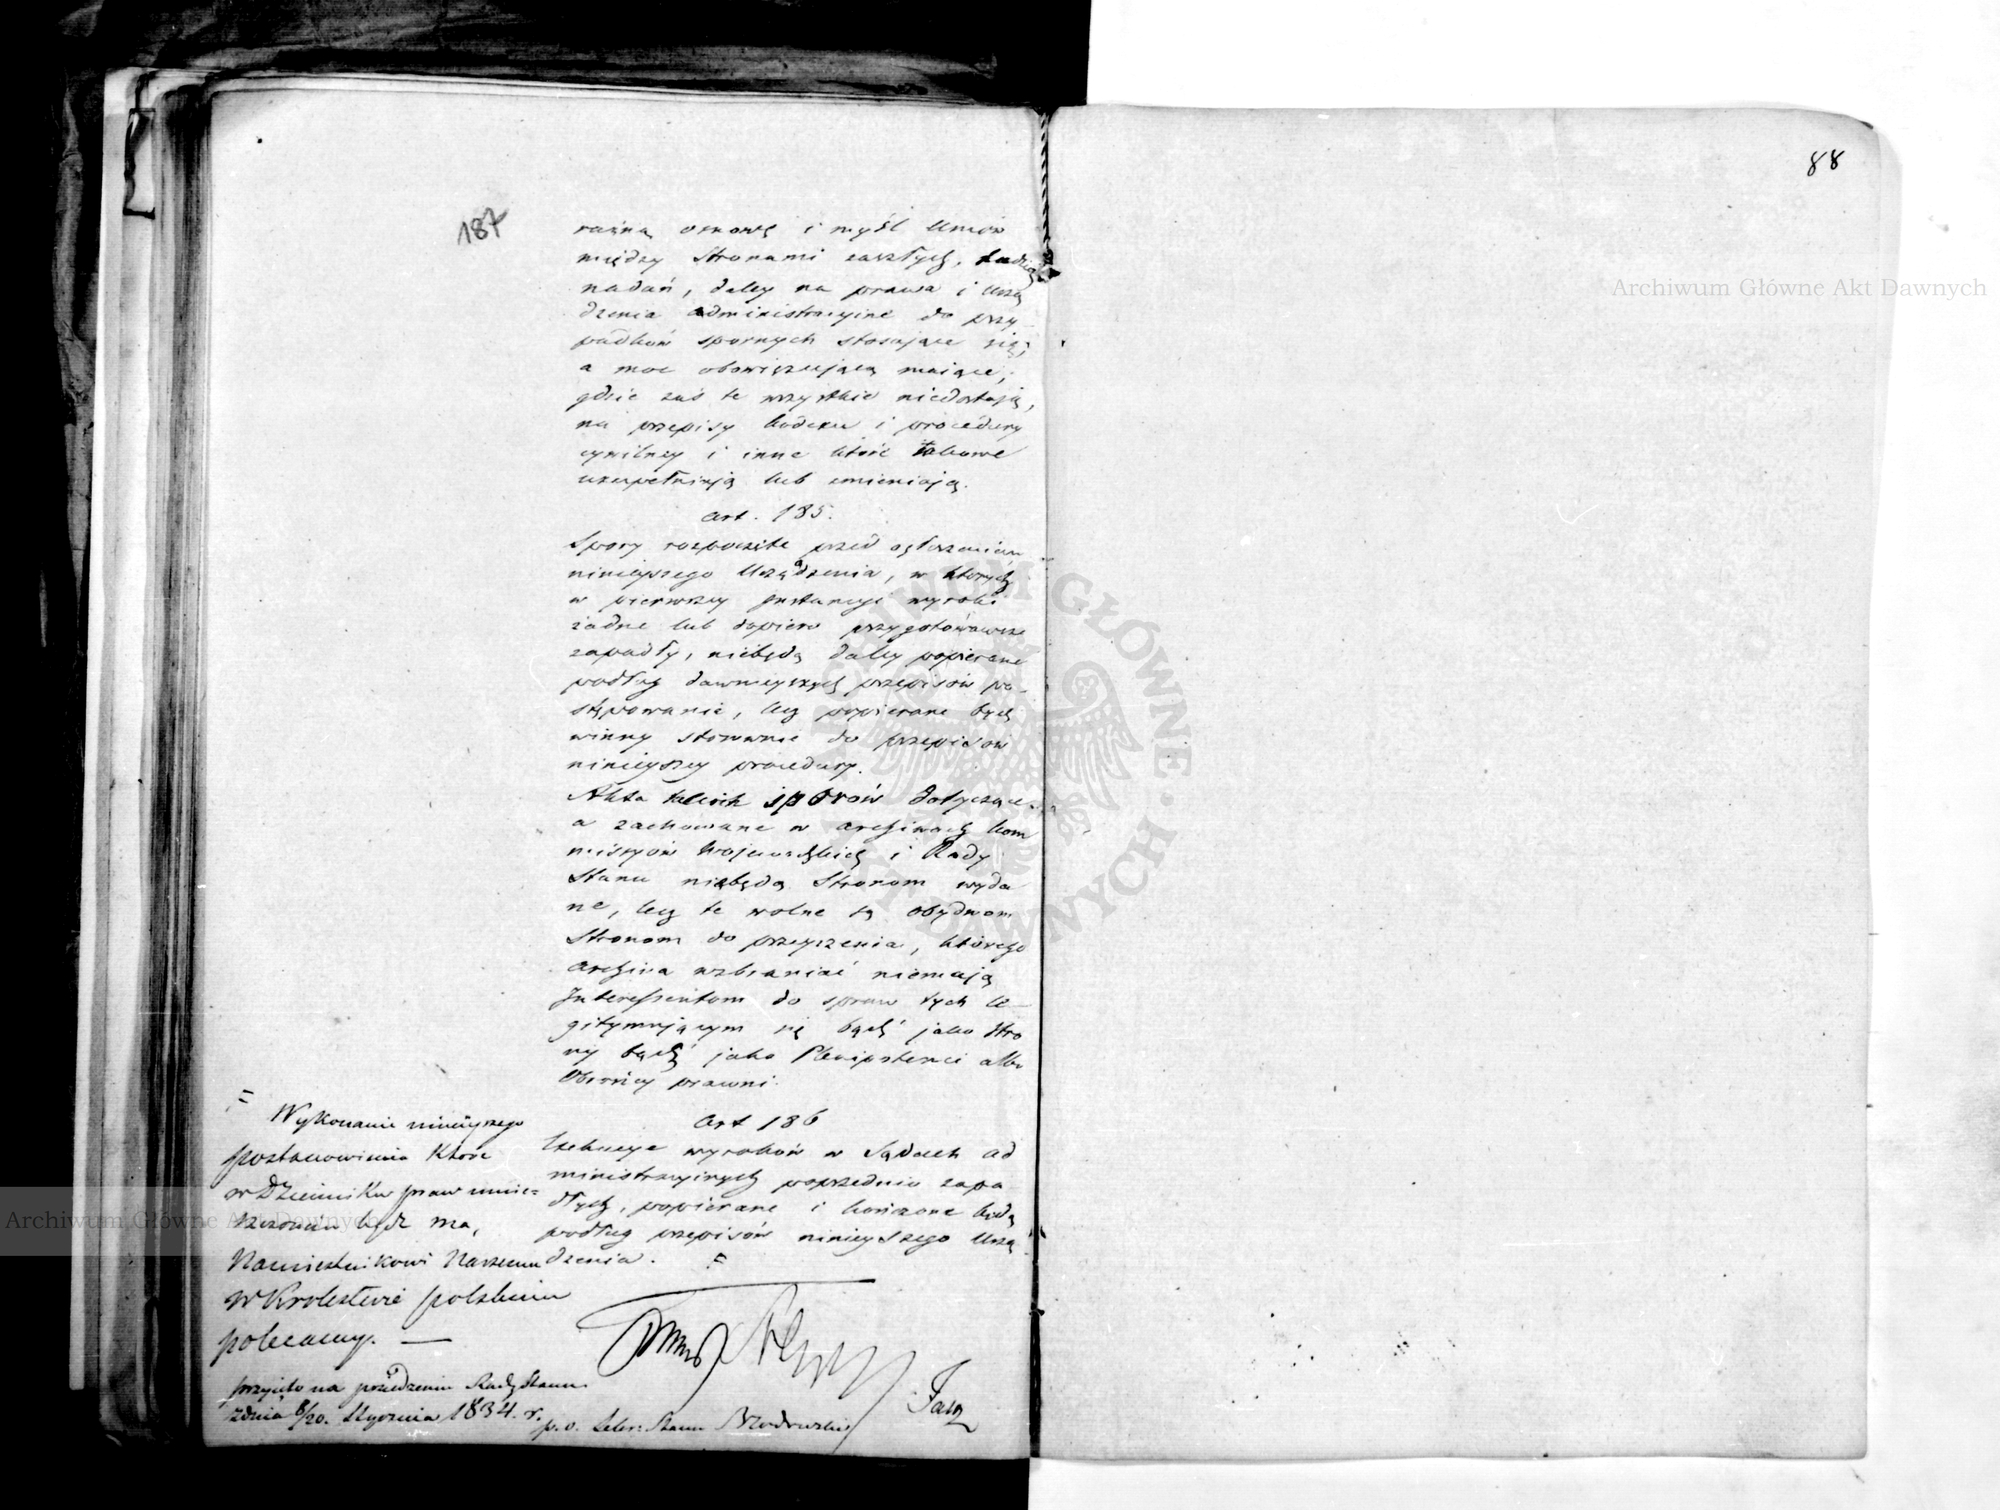 88
187
osnowę i myśl Umów
między Stronami zaszłych,
nadań, daley na prawa i Urzą
dzenia administracyine do przy
padków spornych stosujące się,
a moc obowiązującą maiące,
gdzie zaś te wszystkie niedostają,
na przepisy kodexu i procedury
cywilney i inne które takowe
uzupełniają lub zmieniają.
art. 185.
Spory rozpoczęte przed ogłoszeniem
ninieyszego Urządzenia, w których
w pierwszey Instancyi wyroki
żadne lub dopiero przygotowawcze
zapadły, niebędą daley popierane
podług dawnieyszych przepisów po-
stępowania, lecz popierane być
winny stosownie do przepisów
ninieyszey procedury.
Akta takich sporów dotyczące
a zachowane w archiwach kom
missyów Wojewódzkich i Rady
Stanu niebędą Stronom wyda
ne, lecz te wolne są obydwom
Stronom do przeyrzenia, którego
archiwa wzbraniać niemają
Interessentom do spraw tych le-
gitymującym się bądź jako Stro
ny bądź jako Plenipotenci albo
Obrońcy prawni.
art 186
Exekucye wyroków w Sądach ad
ministracyinych poprzednio zapa
dłych, popierane i kończone będą
podług przepisów ninieyszego Urzą
dzenia. =
= Wykonanie ninieyszego
postanowienia które
w Dzienniku praw umie=
szczonem bydź ma,
Namiestnikowi Naszemu
w Krolestwie polskiem
polecamy. —
przyięto na posiedzeniu Rady Stanu
z dnia 8/20. Stycznia 1834. r.
p. o. Sekr: Stanu Brzodowski
Archiwum Główne Akt Dawnych
Archiwum Główne Akt Dawnych